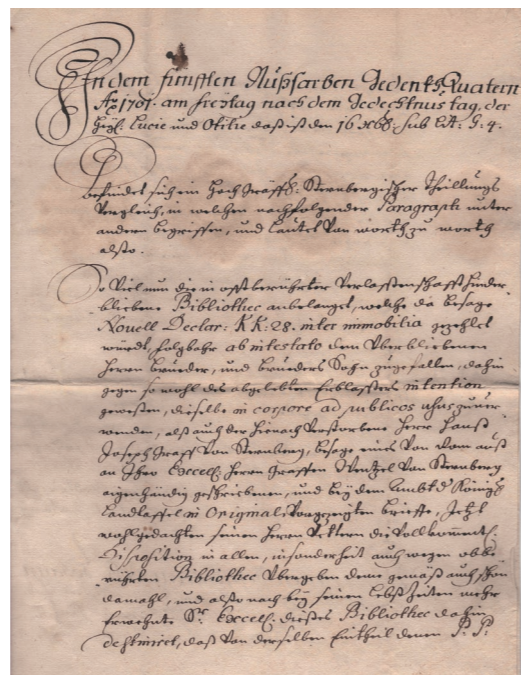 In dem fünfften Nußfarben Gedenkh Quatern
Aō 1701. am freitag nach dem Gedechtnus tag, der
Heyl: Lucie und Otilie daß ist den 16 Xbß: sub Lit: G: 4.
Befindet sich ein Hoch Gräffl: Sternbergischer Theillungs
Vergleich, in welchen nachfolgender Paragraph unter
andern begriffen, und lautet Von worth zu worth
alßo.
So Viel nun die in offt berührter Verlassenschafft hinder-
bliebene Bibliothec anbelanget, welche die besage
Novell Declar: KK: 28. inter immobilia gezehlet
würdt, folgbahr ab intestato dem Uberbliebenen
Herrn Brueder, und Brueders Sohn zugefallen, dahin
gegen so wohl des abgelebten Erblassers intention
geweßen, dieselbe in corpore ad publicos usus zuver-
wenden, alß auch der hienach Verstorbene Herr Hanß
Joseph Graff Von Sternberg, besage eines Von dem auß
an Ihro Excell: Herrn Graffen Wentzel Von Sternberg
aigenhändig geschriebenen, und bey dem Ambt der Königl:
Landtaffel in Originali Vorgezeigten brieffs, Jetzt
wohlgedachten seinen Herrn Vettern die Vollkomment:
Disposition in allen, insonderheit auch wegen obbe-
rührten Bibliothec Übergeben deme gemäß auch schon
damahl, und alßo noch bey seinen Lebs Zeiten mehr
Erwehnte Sr: Excell: dießes Bibliothec dahin
destiniret, daß Von derselben Ein theil denen P: P: